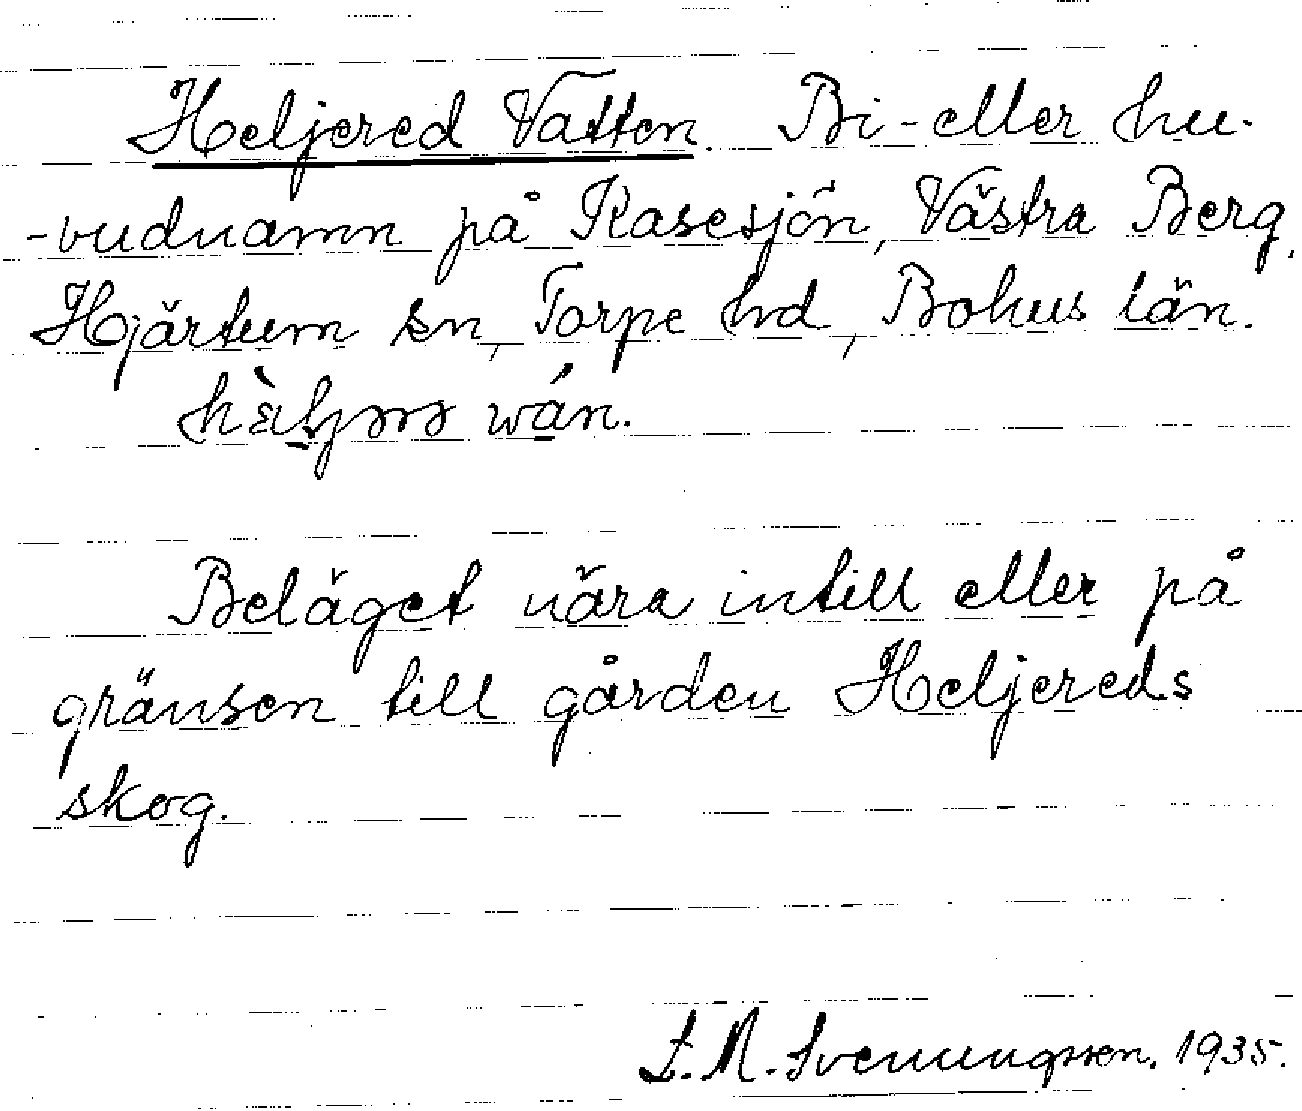 Heljered Vatten. Bi- eller hu-
-vudnamn på Kasesjön, Västra Berg,
Hjärtum sn, Torpe hd, Bohus län.
wán.
Beläget nära intill eller på
gränsen till gården Heljereds
skog.
M. Svenungsson. 1935.